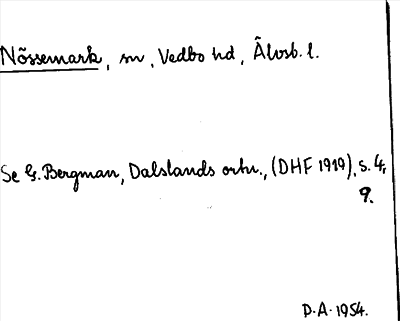 Nõssemark, sn, Vedbo hd, Älvsb. l.
Se G. Bergman, Dalslands ortn., (DHF 1919), s. 4,
9.
D.A. 1954.